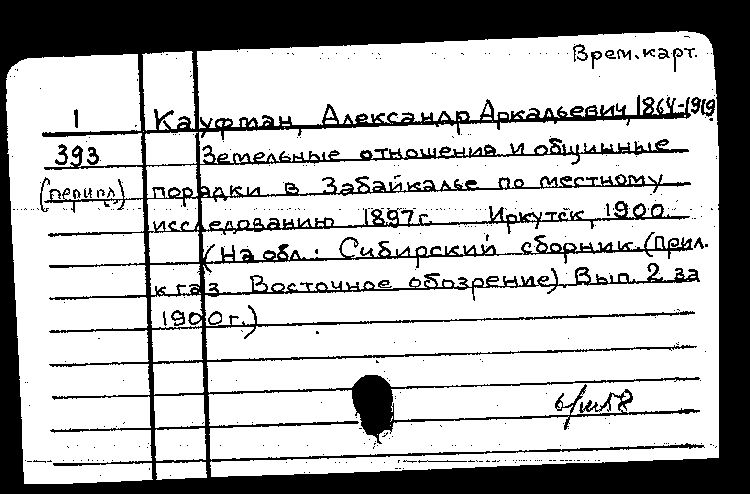 Врем. карт.
1 Кауфман, Александр Аркадьевич, 1864-1919
393 Земельные отношения и общинные
порядки в Забайкалье по местному
исследованию 1897г. Иркутск, 1900.
(На обл.: Сибирский сборник. (Прил.
к газ. Восточное обозрение). Вып. 2 за
1900г.)